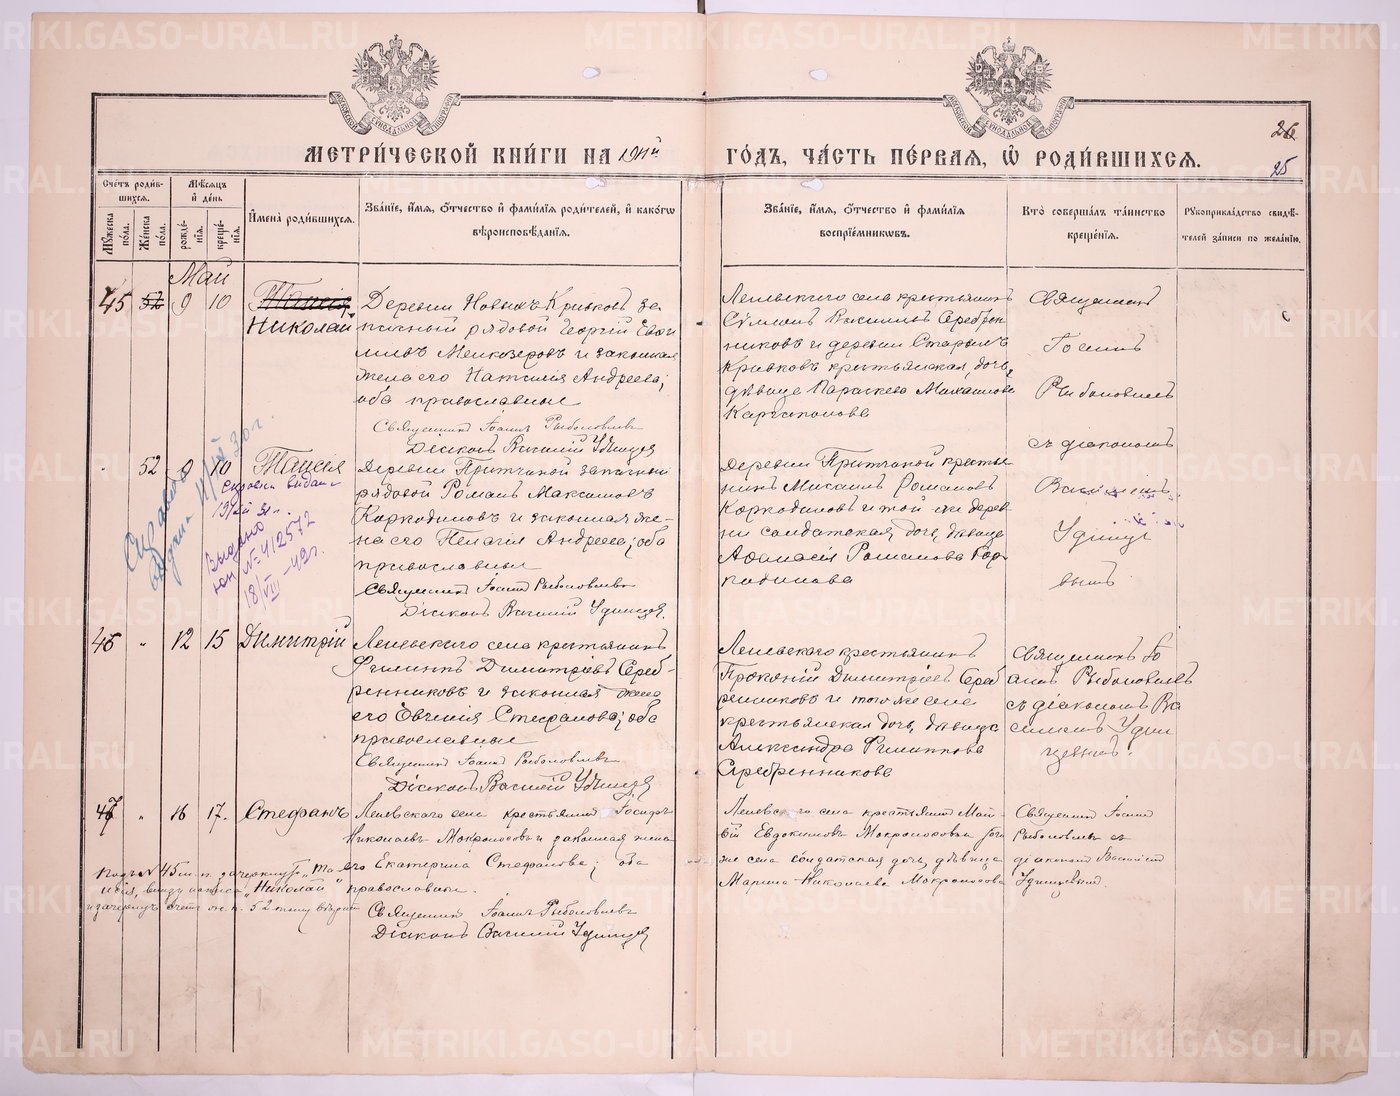 МЕТРИ́ЧЕСКОЙ КНИ́ГИ НА 1911й ГО́ДЪ, ЧА́СТЬ ПЕ́РВАЯ, Ѽ РОДИ́ВШИХСЯ.
26
25
Сче́тъ роди́в-
шихся.
Му́жеска по́ла.
Же́нска по́ла.
Мѣ́сяцъ
и҆ де́нь
рожде́-
нїя.
креще́-
нїя.
И҆мена̀ роди́вшихся.
Зва́нїе, и҆́мя, ѻ҆́тчество и҆ фами́лїя роди́телей, и҆ како́гѡ
вѣроисповѣ́данїя.
Зва́нїе, и҆́мя, ѻ҆́тчество и҆ фами́лїя
воспрїе́мникѡвъ.
Кто̀ соверша́лъ та́инство
креще́нїя.
Рꙋкоприкла́дство свидѣ́-
телей за́писи по жела́нїю.
Май
45 52 9 10 Таисія
Николай
Деревни Новыхъ Кривковъ за-
пасный рядовой Георгій
и законная
жена его Наталія Андреева;
оба православные
Священникъ Іоаннъ Рыболовлевъ
Діаконъ Василій Удинцев
Лепевского села крестьянинъ
Васильевъ Серебрен-
никовъ и деревни Старыхъ
Кривковъ крестьянская дочь,
дѣвица Параскева Михаилова
Каргаполова
Священникъ
Іоаннъ
Рыболовлевъ
съ діакономъ
Василіемъ
Удинце-
вымъ
52 9 10 Таисія
Деревни Притчиной запасный
рядовой Романъ Максимовъ
Коркодиновъ и законная же-
на его Пелагія Андреева; оба
православные
Священникъ Іоаннъ Рыболовлевъ
Діаконъ Василій Удинцев.
Деревни Притчиной крестья-
нинъ Михаилъ Романовъ
Коркодиновъ и той же дерев-
ни солдатская дочь, дѣвица
Романова Кор-
кодинова
Справка
выдана 11/II 30 г.
Справка выдана
Выдано
№ 412572
18/VIII - 42 г.
46 " 12 15 Димитрій
Лепевского села крестьянинъ
Филиппъ Димитріевъ Сереб-
ренниковъ и законная жена
его Евгенія Стефанова; оба
православные
Священникъ Іоаннъ Рыболовлевъ
Діаконъ Василій Удинцев
Лепевского крестьянинъ
Прокопій Димитріевъ Сереб-
ренниковъ и того же села
крестьянская дочь, дѣвица
Александра Филиппова
Серебренникова
Священникъ Іо-
аннъ Рыболовлевъ
съ діакономъ Ва-
силіемъ Удин-
цевымъ.
47 " 16 17. Стефанъ
Лепевского села крестьянинъ Іосифъ
Николаевъ Мокроносовъ и законная жена
его Екатерина Стефанова; оба
православные.
Священникъ Іоаннъ Рыболовлевъ
Діаконъ Василій Удинцев
Лепевского села крестьянинъ Мат-
вій Евдокимовъ Мокроносовъ и того
же села солдатская дочь, дѣвица
Марина Николаева Мокроносова
Священникъ Іоаннъ
Рыболовлевъ съ
діакономъ Василіемъ
Удинцевымъ.
Подъ № 45 м. п. зачеркнуто „Та-
исія, „Николай“
и зачеркнутъ счетъ ж. п. 52